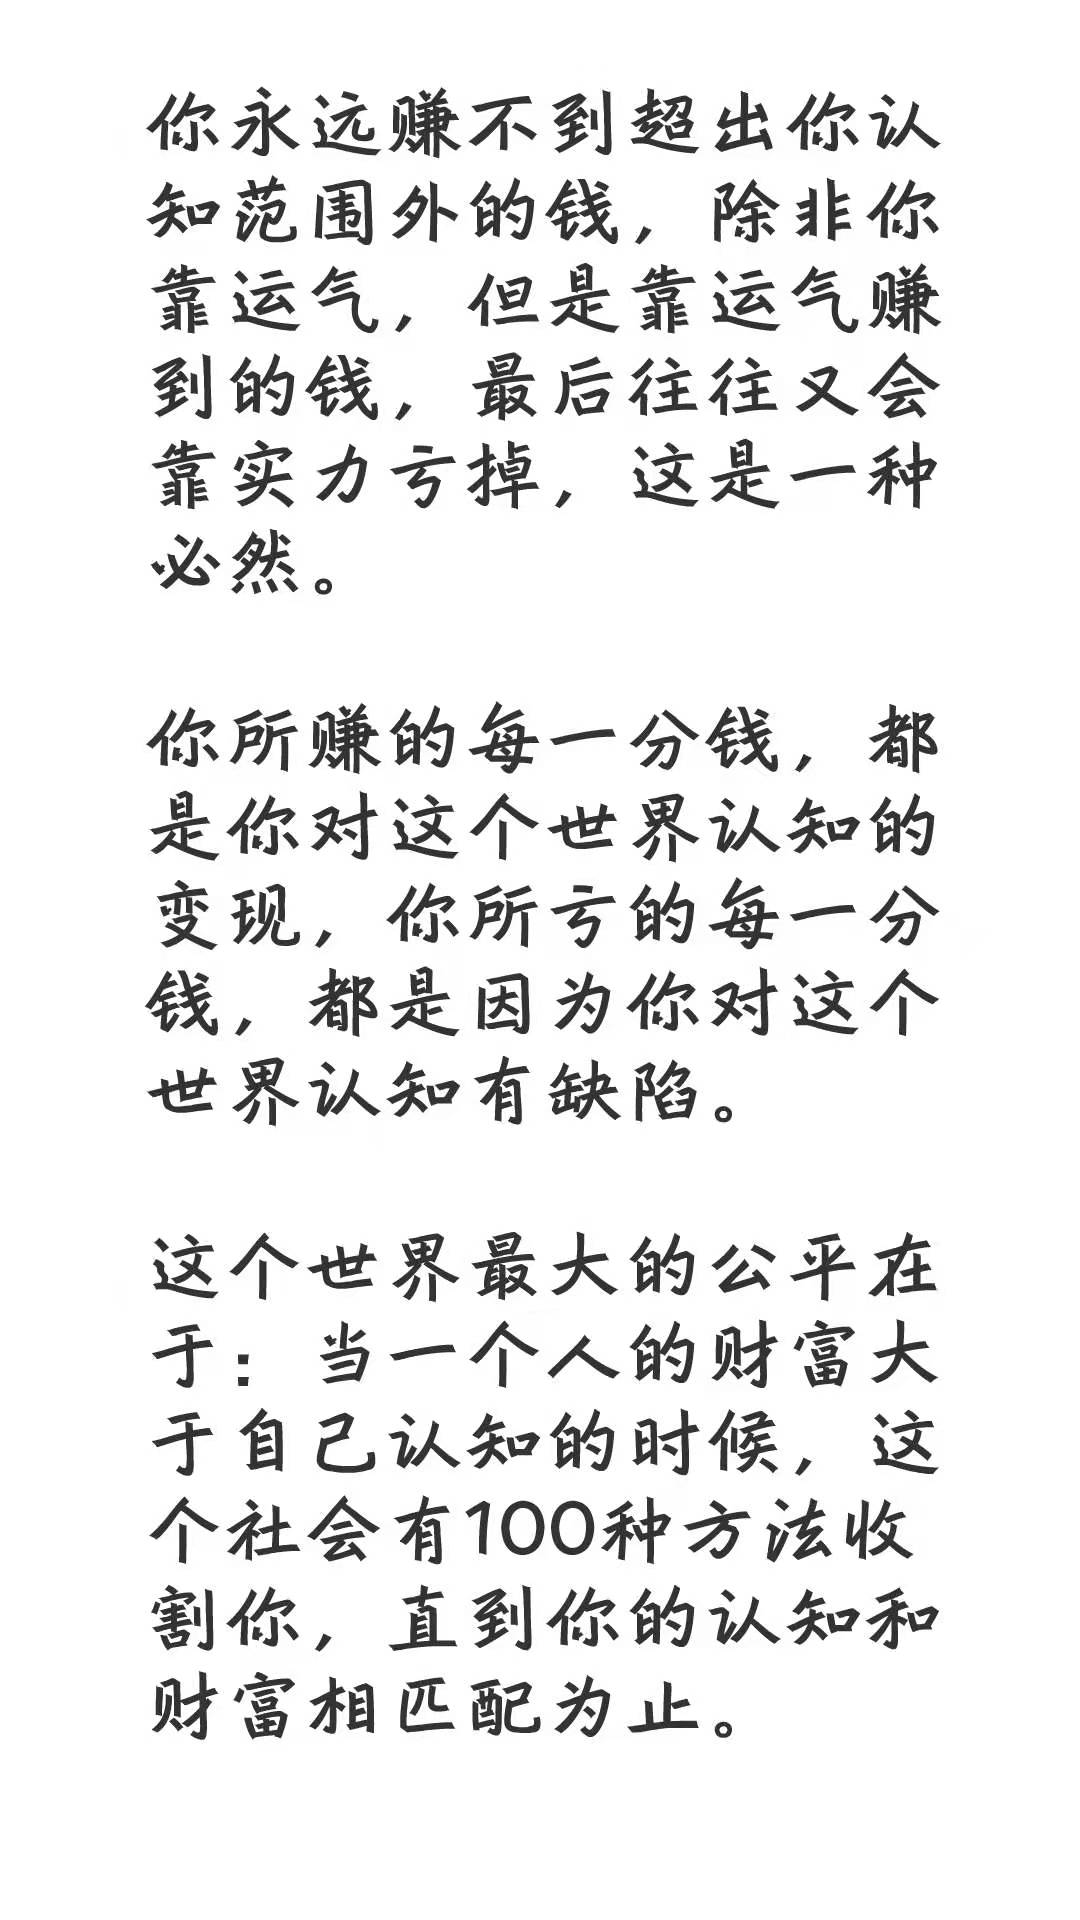 你永远赚不到超出你认
知范围外的钱，除非你
靠运气，但是靠运气赚
到的钱，最后往往又会
靠实力亏掉，这是一种
必然。
你所赚的每一分钱，都
是你对这个世界认知的
变现，你所亏的每一分
钱，都是因为你对这个
世界认知有缺陷。
这个世界最大的公平在
于：当一个人的财富大
于自己认知的时候，这
个社会有100种方法收
割你，直到你的认知和
财富相匹配为止。